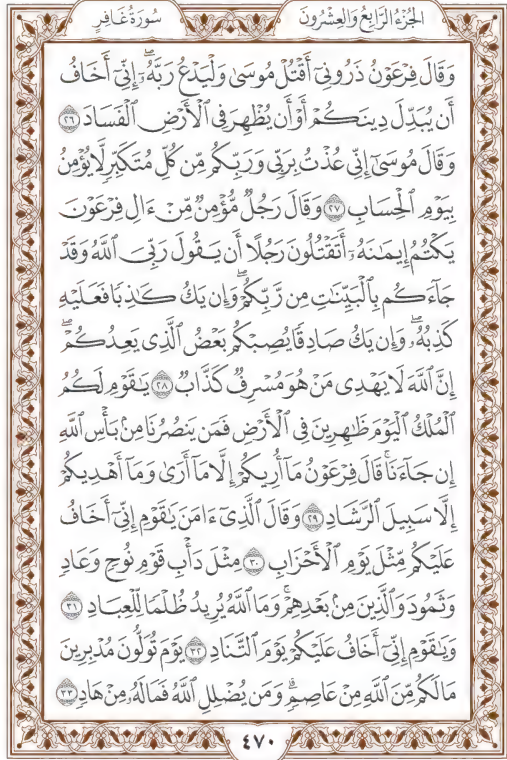 الجُزْءُ الرَّابِعُ وَالْعِشْرُونَ
سُورَةُ غَافِرٍ
وَقَالَ فِرْعَوْنُ ذَرُونِىٓ أَقْتُلْ مُوسَىٰ وَلْيَدْعُ رَبَّهُۥٓ ۖ إِنِّىٓ أَخَافُ
أَن يُبَدِّلَ دِينَكُمْ أَوْ أَن يُظْهِرَ فِى ٱلْأَرْضِ ٱلْفَسَادَ ٢٦
وَقَالَ مُوسَىٰٓ إِنِّى عُذْتُ بِرَبِّى وَرَبِّكُم مِّن كُلِّ مُتَكَبِّرٍ لَّا يُؤْمِنُ
بِيَوْمِ ٱلْحِسَابِ ٢٧ وَقَالَ رَجُلٌ مُّؤْمِنٌ مِّنْ ءَالِ فِرْعَوْنَ
يَكْتُمُ إِيمَٰنَهُۥٓ أَتَقْتُلُونَ رَجُلًا أَن يَقُولَ رَبِّىَ ٱللَّهُ وَقَدْ
جَآءَكُم بِٱلْبَيِّنَٰتِ مِن رَّبِّكُمْ ۖ وَإِن يَكُ كَٰذِبًا فَعَلَيْهِ
كَذِبُهُۥ ۖ وَإِن يَكُ صَادِقًا يُصِبْكُم بَعْضُ ٱلَّذِى يَعِدُكُمْ ۖ
إِنَّ ٱللَّهَ لَا يَهْدِى مَنْ هُوَ مُسْرِفٌ كَذَّابٌ ٢٨ يَٰقَوْمِ لَكُمُ
ٱلْمُلْكُ ٱلْيَوْمَ ظَٰهِرِينَ فِى ٱلْأَرْضِ فَمَن يَنصُرُنَا مِنۢ بَأْسِ ٱللَّهِ
إِن جَآءَنَا ۚ قَالَ فِرْعَوْنُ مَآ أُرِيكُمْ إِلَّا مَآ أَرَىٰ وَمَآ أَهْدِيكُمْ
إِلَّا سَبِيلَ ٱلرَّشَادِ ٢٩ وَقَالَ ٱلَّذِىٓ ءَامَنَ يَٰقَوْمِ إِنِّىٓ أَخَافُ
عَلَيْكُم مِّثْلَ يَوْمِ ٱلْأَحْزَابِ ٣٠ مِثْلَ دَأْبِ قَوْمِ نُوحٍ وَعَادٍ
وَثَمُودَ وَٱلَّذِينَ مِنۢ بَعْدِهِمْ ۚ وَمَا ٱللَّهُ يُرِيدُ ظُلْمًا لِّلْعِبَادِ ٣١
وَيَٰقَوْمِ إِنِّىٓ أَخَافُ عَلَيْكُمْ يَوْمَ ٱلتَّنَادِ ٣٢ يَوْمَ تُوَلُّونَ مُدْبِرِينَ
مَا لَكُم مِّنَ ٱللَّهِ مِنْ عَاصِمٍ ۗ وَمَن يُضْلِلِ ٱللَّهُ فَمَا لَهُۥ مِنْ هَادٍ ٣٣
٤٧٠